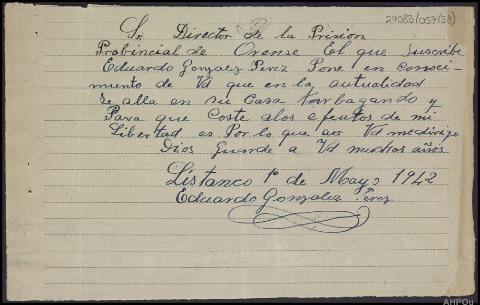 24083/057(38)
Sr Director de la Prision
Probincial de Orense El que suscribe
Eduardo Gonzalez Perez Pone en conoci-
miento de Vd que en la actualidad
se alla en su Casa trabagando y
Para que Coste alos efeutos de mi
Libertad es Por lo que a Vd me dirigo
Dios guarde a Vd muchos años.
Listanco 1º de Mayo 1942
Eduardo Gonzalez Perez
AHPOu